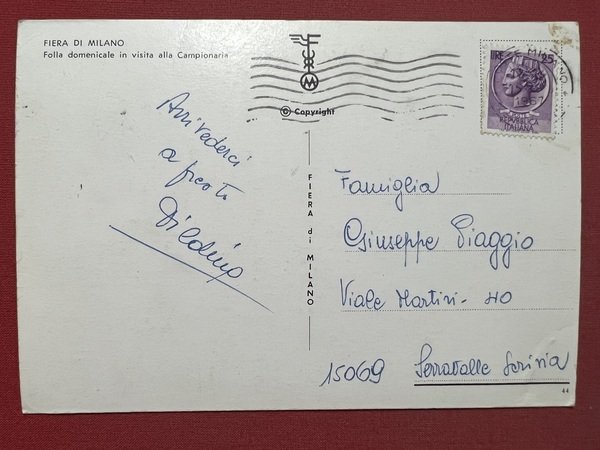 FIERA DI MILANO
Folla domenicale in visita alla Campionaria
© Copyright
FIERA di MILANO
LIRE 25
REPVBBLICA
ITALIANA
MILANO
Arrivederci
a presto
Famiglia
Giuseppe Piaggio
Viale Martiri - 40
15069 Serravalle Scrivia
44